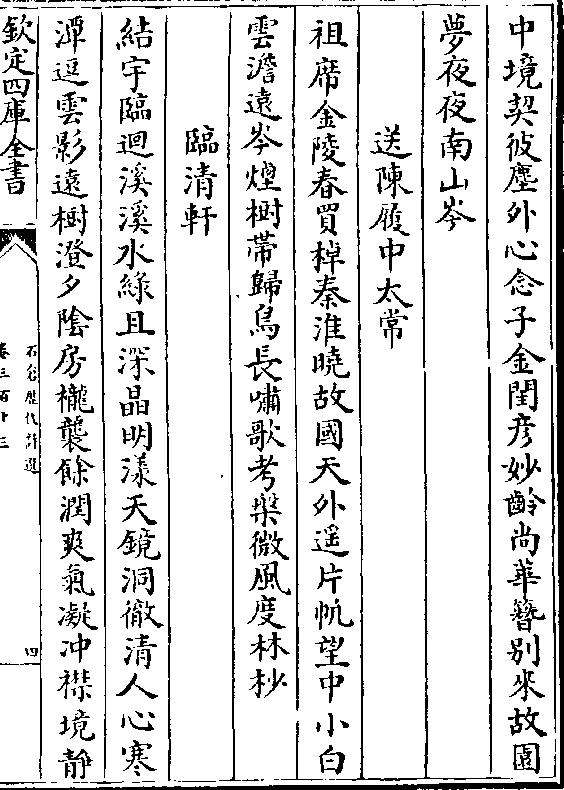 中境契彼塵外心念子金閨彦妙齡尚華簪别來故園
夢夜夜南山岑
送陳履中太常
祖席金陵春買棹秦淮曉故國天外遥片帆望中小白
雲澹遠岑煙樹帶歸鳥長嘯歌考槃微風度林杪
臨清軒
結宇臨迴溪溪水綠且深晶明漾天鏡洞徹清人心寒
潭逗雲影遠樹澄夕陰房櫳襲餘潤爽氣凝冲襟境靜
欽定四庫全書
石倉歷代詩選
卷三百十三
四